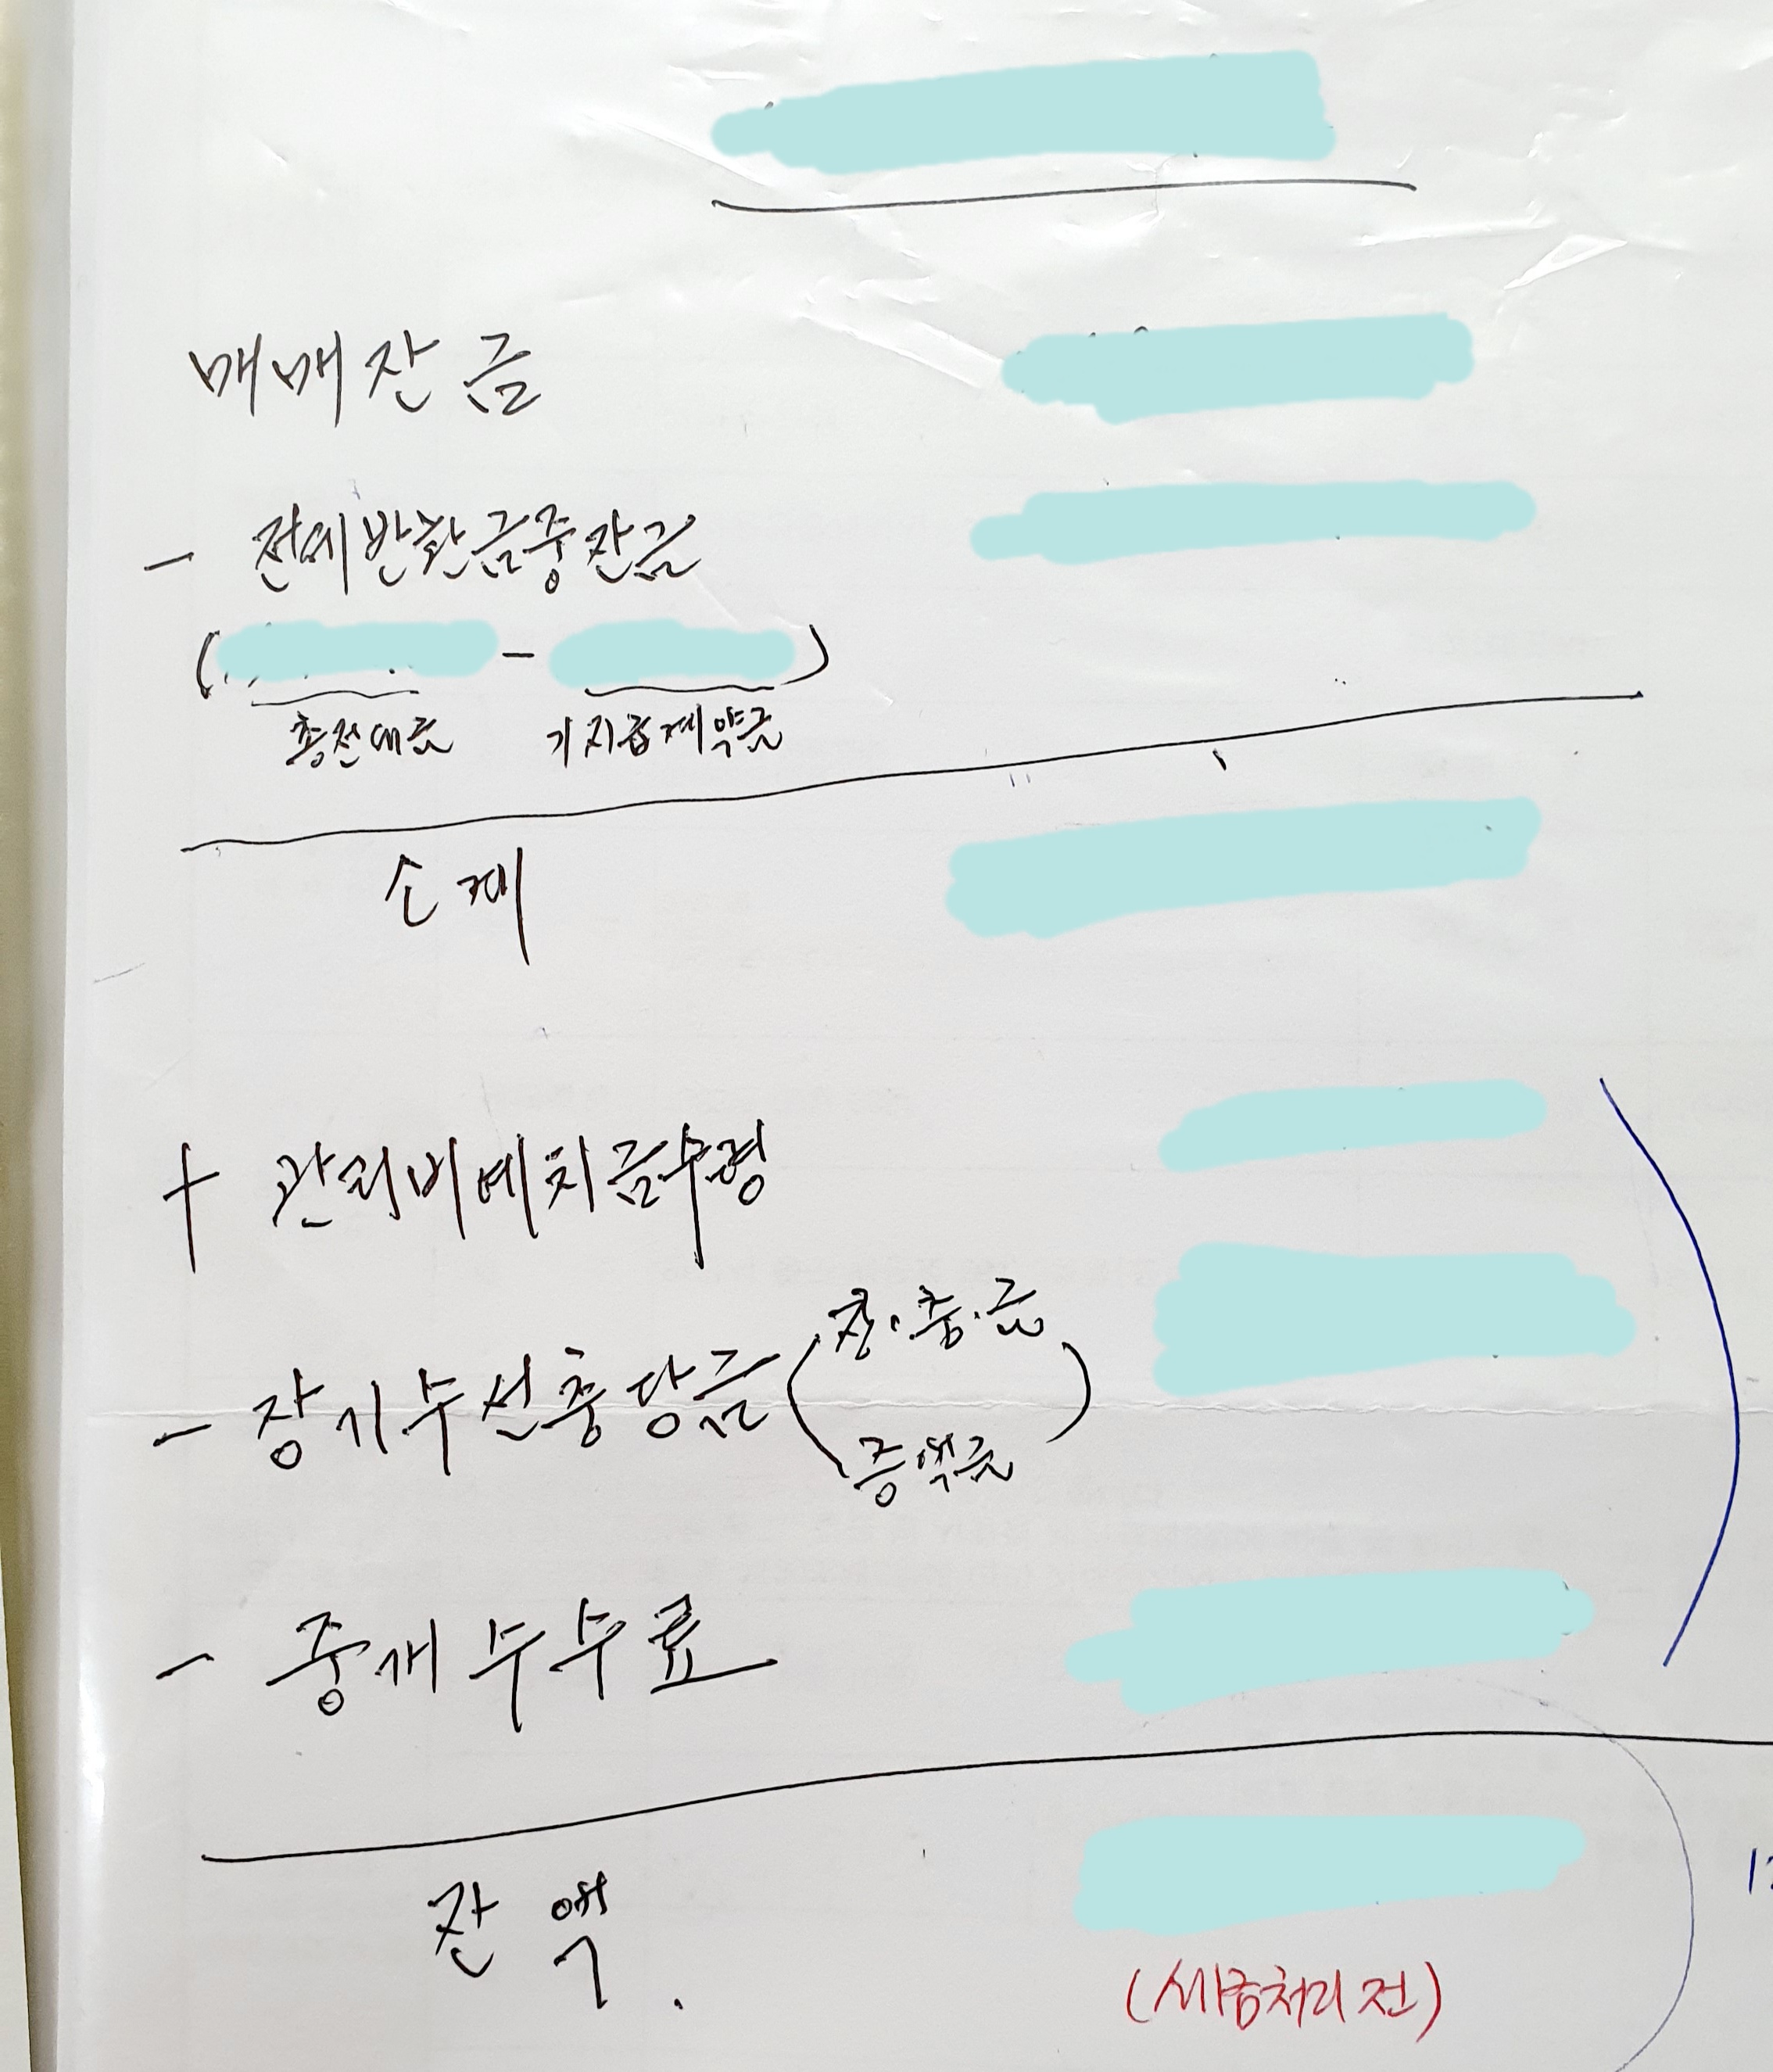 매매잔금
- 전세반환금중잔금
( - )
총전세금 기지급계약금
소계
+ 관리비예치금수령
- 장기수선충당금 (장·충·금
증액금)
- 중개수수료
잔액.
(세금처리전)